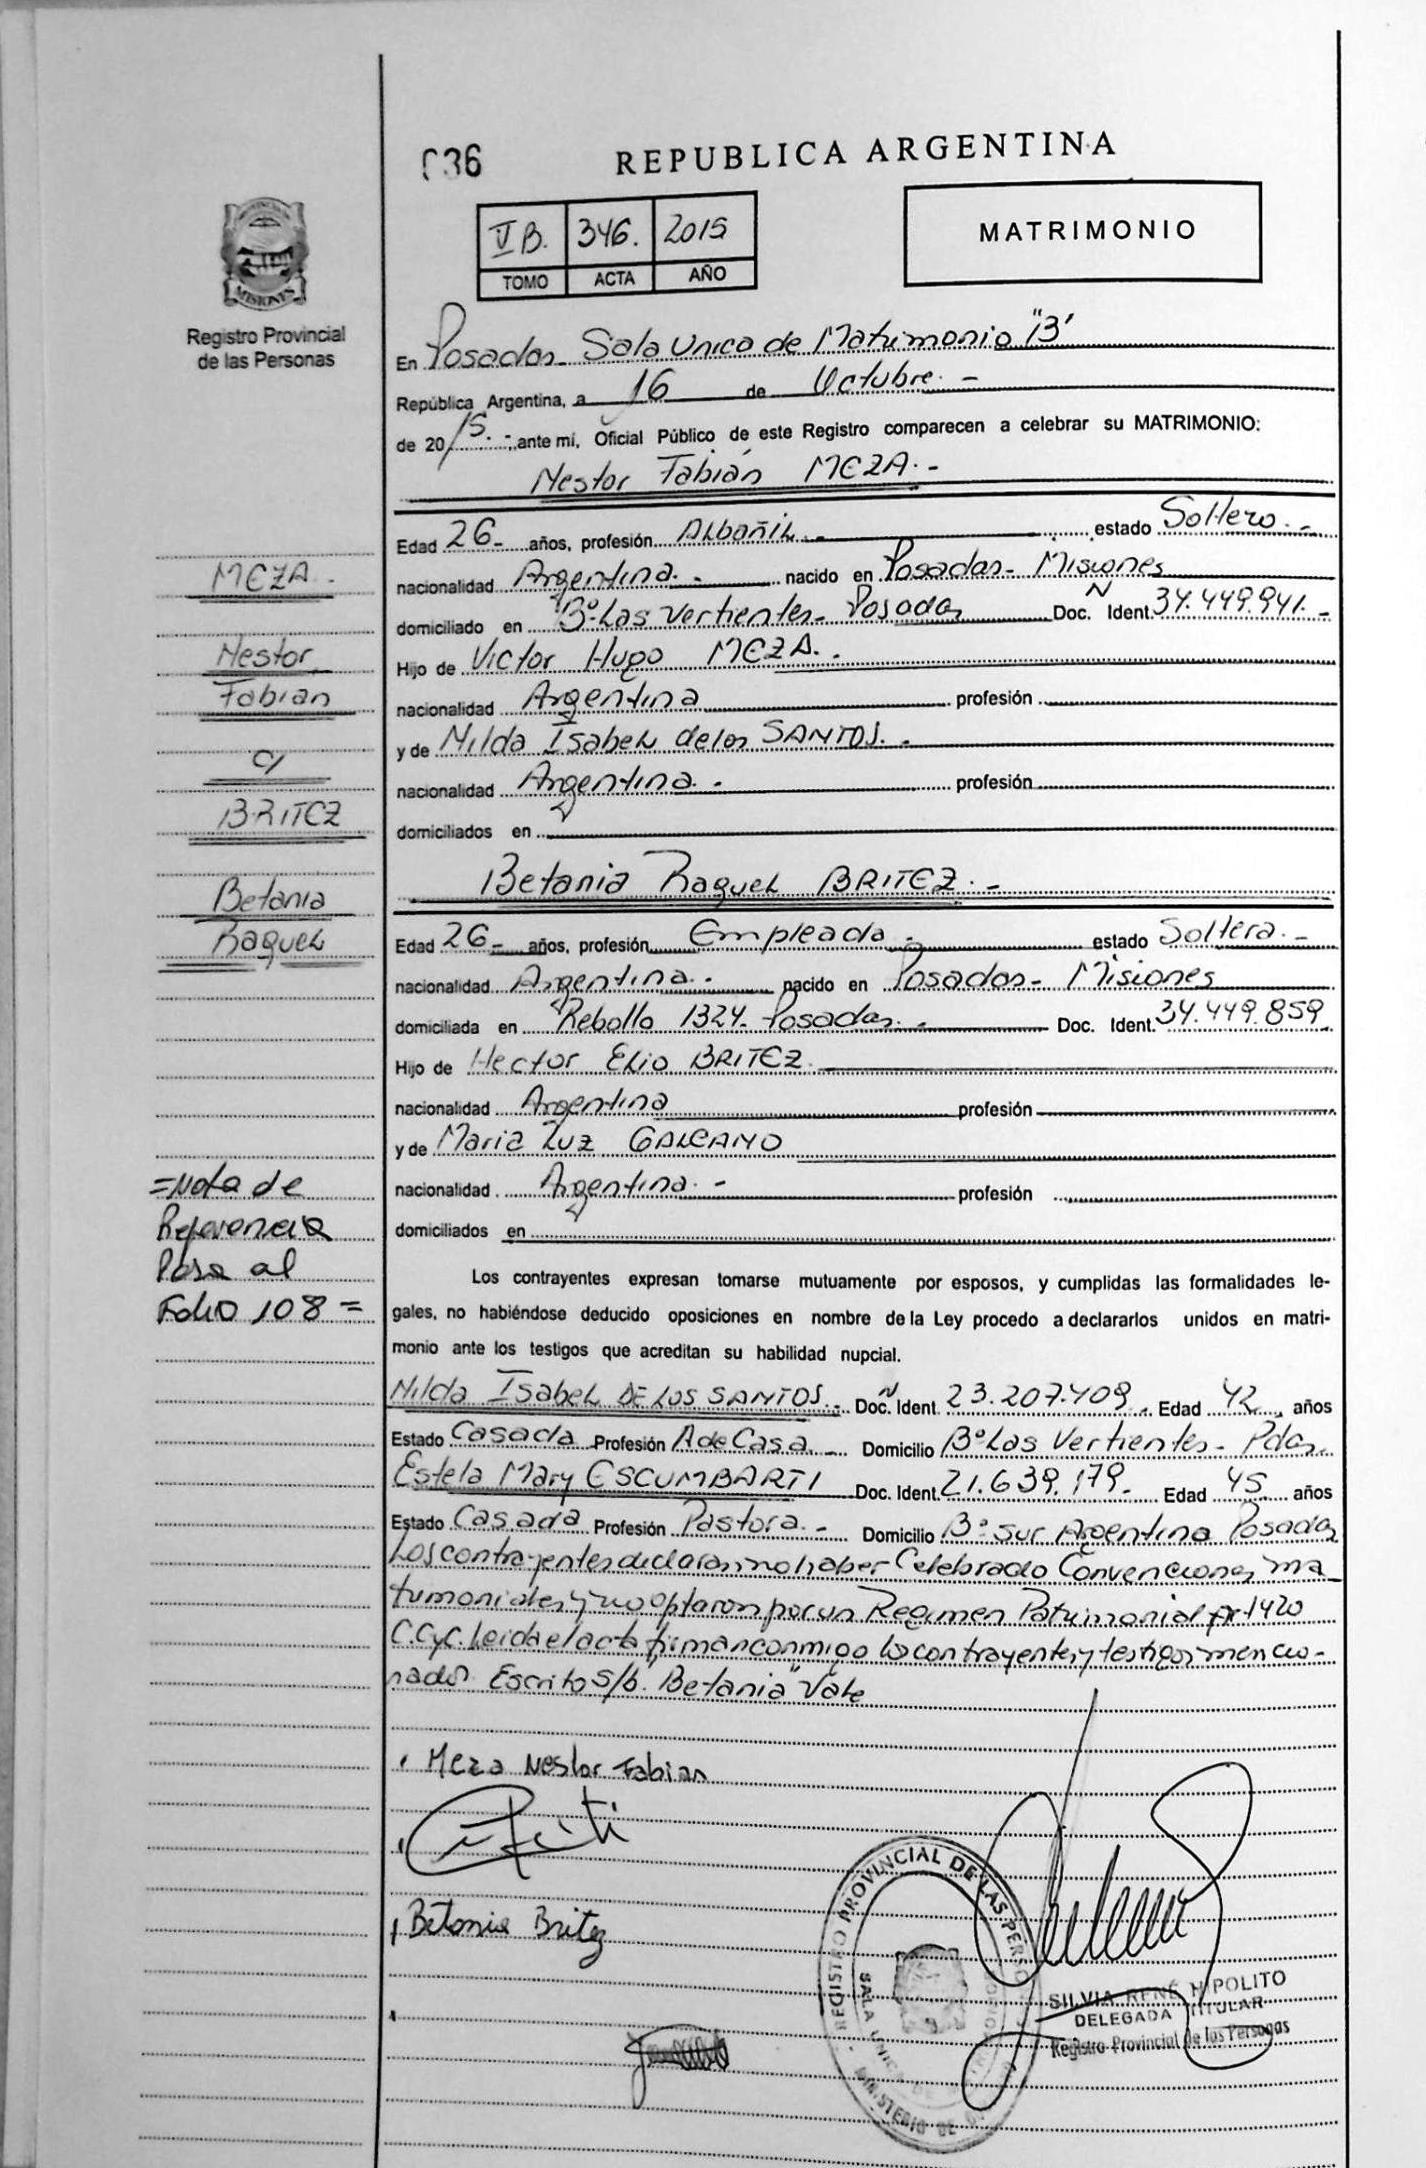 036
REPUBLICA ARGENTINA
V B. 346. 2015
TOMO ACTA AÑO
MATRIMONIO
MISIONES
Registro Provincial
de las Personas
En Posadas - Sala Unica de Matrimonio "B"
República Argentina, a 16 de Octubre. -
de 2015. - ante mí, Oficial Público de este Registro comparecen a celebrar su MATRIMONIO:
Nestor Fabián MEZA. -
Edad 26 - años, profesión Albañil. - estado Soltero. -
nacionalidad Argentina. - nacido en Posadas - Misiones
domiciliado en Bº Las Vertientes - Posadas Doc. N Ident. 34.449.941. -
Hijo de Victor Hugo MEZA. -
nacionalidad Argentina profesión
y de Nilda Isabel de los SANTOS. -
nacionalidad Argentina. - profesión
domiciliados en
Betania Raquel BRITEZ. -
Edad 26 - años, profesión Empleada - estado Soltera. -
nacionalidad Argentina. - nacido en Posadas - Misiones
domiciliada en Rebollo 1324 - Posadas. - Doc. Ident. 34.449.859
Hijo de Hector Elio BRITEZ.
nacionalidad Argentina profesión
y de Maria Luz GALEANO
nacionalidad Argentina. - profesión
domiciliados en
Los contrayentes expresan tomarse mutuamente por esposos, y cumplidas las formalidades le-
gales, no habiéndose deducido oposiciones en nombre de la Ley procedo a declararlos unidos en matri-
monio ante los testigos que acreditan su habilidad nupcial.
Nilda Isabel DE LOS SANTOS. - Doc. N Ident 23.207.409. Edad 42 años
Estado Casada Profesión A de Casa - Domicilio Bº Las Vertientes - Pdas.
Estela Mary ESCUMBARTI Doc. Ident. 21.639.179. - Edad 45 años
Estado Casada Profesión Pastora. - Domicilio Bº Sur Argentino Posadas
Los contrayentes declaran no haber Celebrado Convenciones ma-
trimoniales y no optaron por un Regimen Patrimonial Ar 1420
C.C y C. Leida el acta firman conmigo los contrayentes y testigos mencio-
nados. Escrito s/b. "Betania" Vale
MEZA
Nestor
Fabian
C/
BRITEZ
Betania
Raquel
= Nota de
Referencia
Pasa al
Folio 108 =
Meza Nestor Fabian
Betania Britez
REGISTRO PROVINCIAL DE LAS PERSO
SALA UNICA DE
MINISTERIO DE
SILVIA RENÉ HIPOLITO
DELEGADA TITULAR
Registro Provincial de las Personas